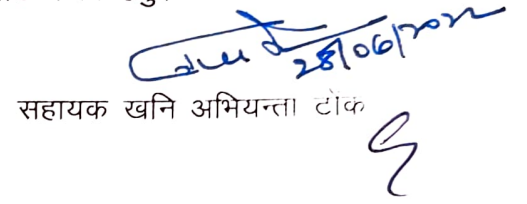 28/06/2022
सहायक खनि अभियन्ता टोंक